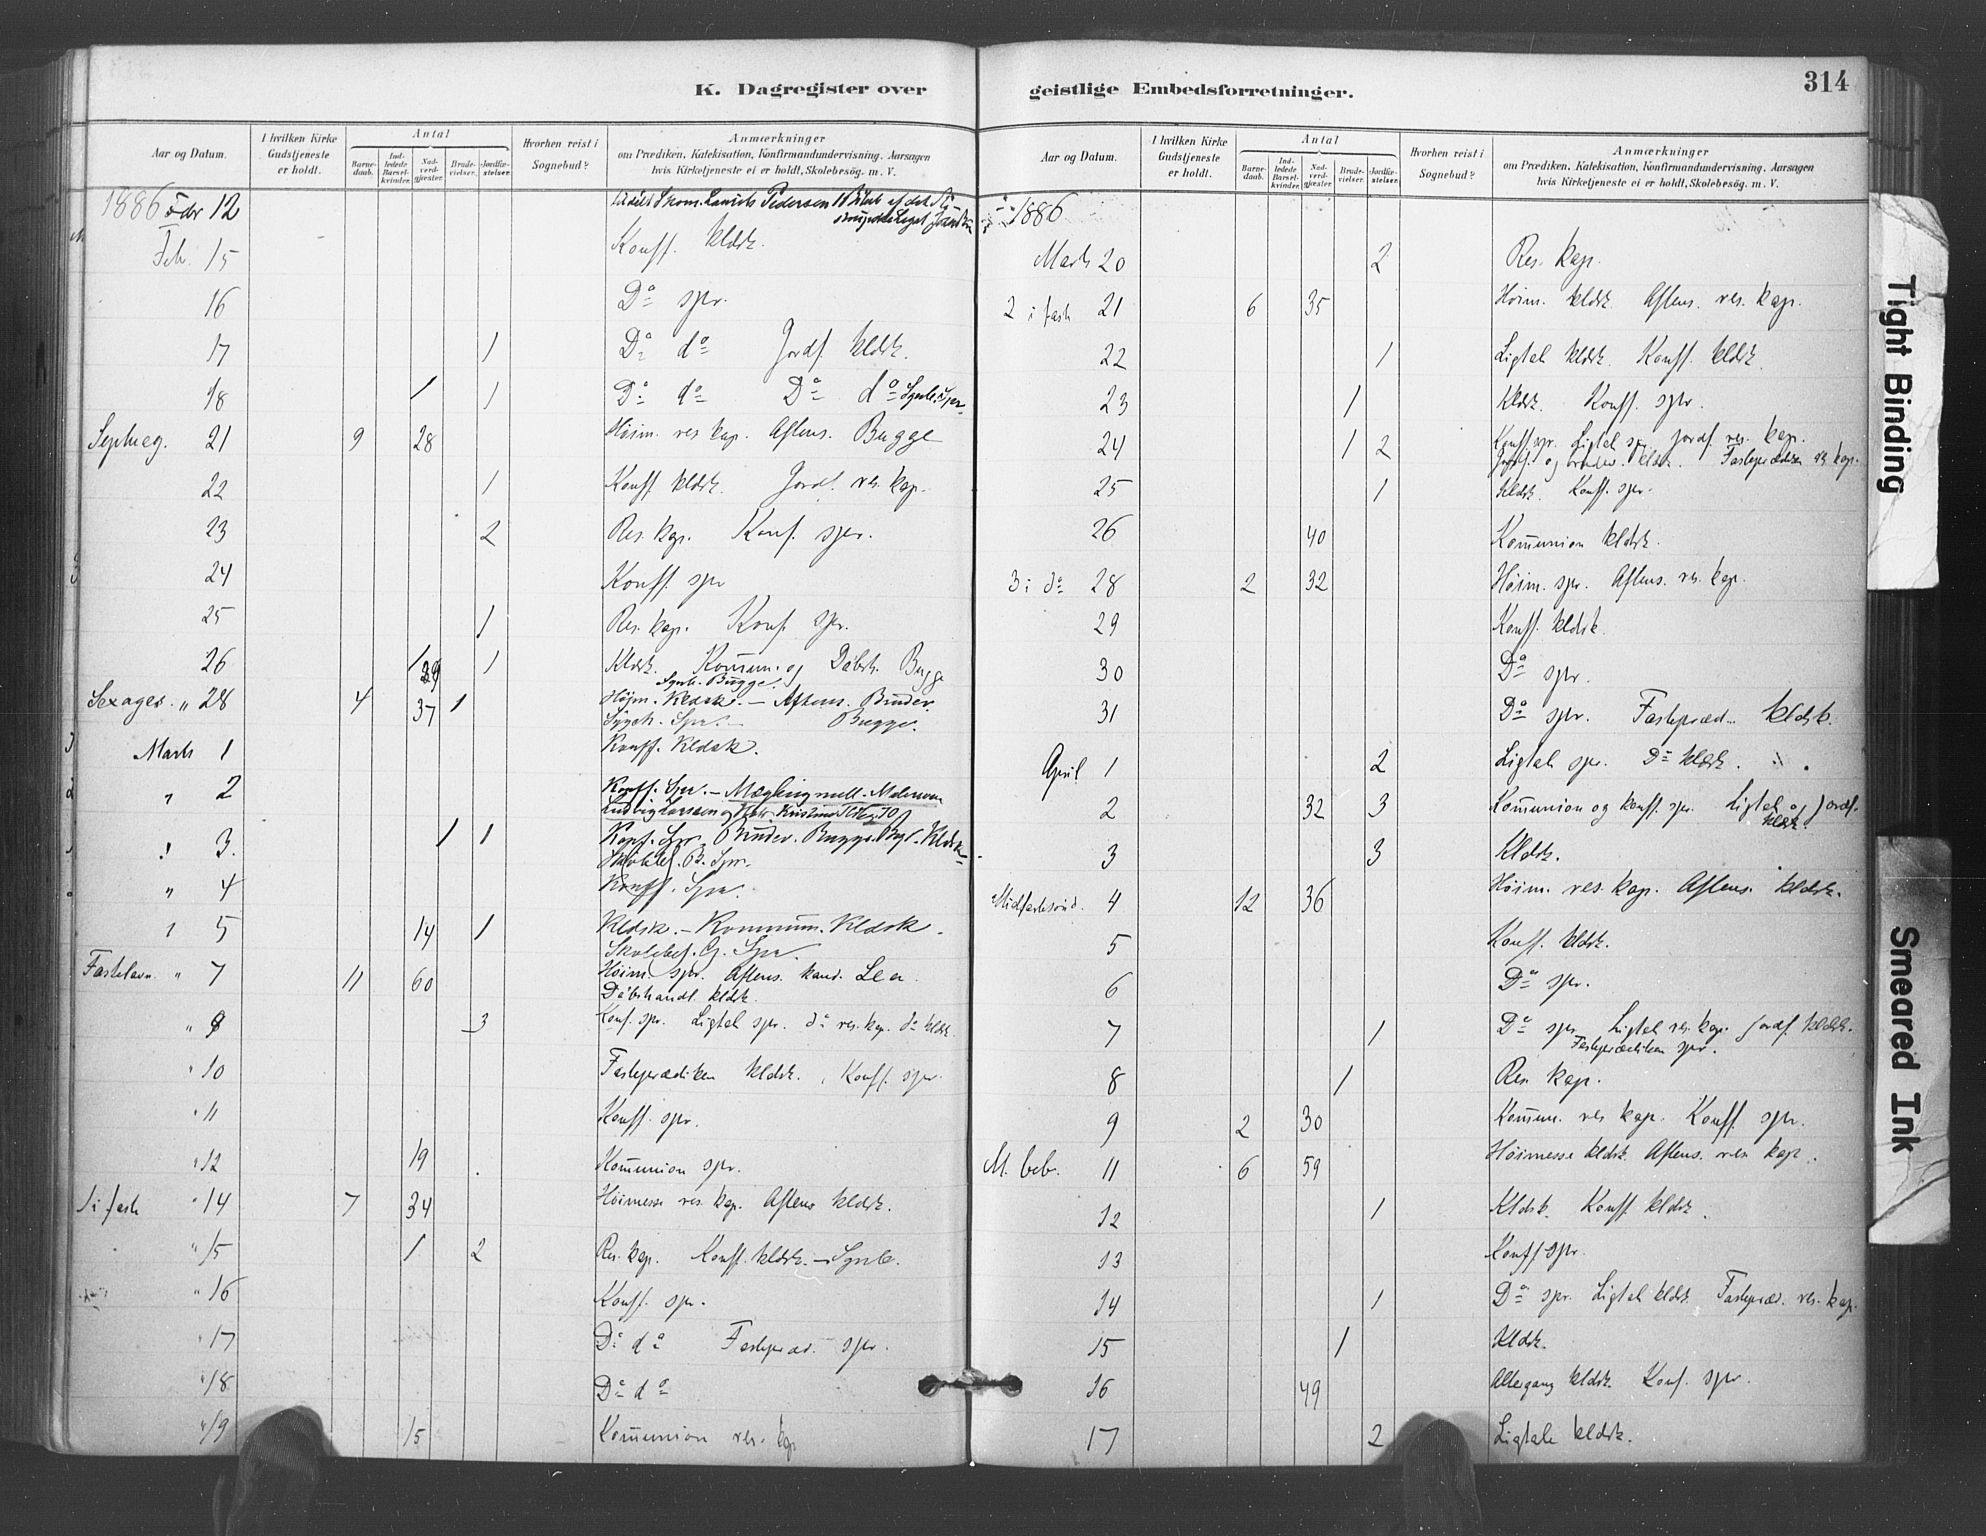 K. Dagregister over
Aar og Datum.
I hvilken Kirke Gudstjeneste er holdt.
Antal
Barne-daab.
Ind-ledede Barsel-kvinder.
Nad-verd-gjester.
Brude-vielser.
Jordfæ-stelser.
Hvorhen reist i Sognebud?
Anmærkninger
om Prædiken, Katekisation, Konfirmandundervisning, Aarsagen
hvis Kirketjeneste ei er holdt, Skolebesøg. m. V.
1886 Febr 12 Pedersen
Feb. 15 Konff. kldsk.
16 Do spr.
17 1 Do do Jordf. kldsk.
18 1 1 Do do Do do
Septuag. 21 9 28 Høim. res kap. Aftens. Bugge
22 1 Konff. kldsk. Jordf. res. kap.
23 2 Res. kap. Konf. spr.
24 Konff. spr
25 1 Res. kap. Konf. spr.
26 1 Kldsk. Komun. og Døbsh. Bugge
Sexages. " 28 4 37 1 Høim. Kldsk. — Aftens. Bruder.
Bugge.
Marts 1 Konff. Kldsk.
" 2 Konff. Spr. — Mægling mell.
" 3. 1 1 Konf. Spr. Bruder. Bugge. Kldsk
" 4 Konff. Spr.
5 14 1 Kldsk. — Kommun. Kldsk.
Skolebes. G. Spr.
Fastelavn " 7 11 60 Høim. spr. Aftens. kand. Lea
Døbshandl. kldsk.
" 9 3 Konf. spr. Ligtal spr. do res. kap. do kldsk.
" 10 Fasteprædiken kldsk. Konff. spr.
" 11 Konff. spr.
" 12 19 Komunion spr.
1 i fast " 14 7 34 Høimesse res. kap. Aftens kldsk.
" 15 1 2 Res. kap. Konff. kldsk. —
" 16 Konff. spr.
" 17 Do do Fastepræd. spr.
" 18 Do do
" 19 15 Komunion res. kap
geistlige Embedsforretninger.
314
Aar og Datum.
I hvilken Kirke Gudstjeneste er holdt.
Antal
Barne-daab.
Ind-ledede Barsel-kvinder.
Nad-verd-gjester.
Brude-vielser.
Jordfæ-stelser.
Hvorhen reist i Sognebud?
Anmærkninger
om Prædiken, Katekisation, Konfirmandundervisning, Aarsagen
hvis Kirketjeneste ei er holdt, Skolebesøg. m. V.
1886
Marts 20 2 Res. kap.
2 i fast 21 6 35 Høim. kldsk. Aftens. res. kap.
22 1 Ligtal kldsk. Konff. kldsk.
23 1 Kldsk. Konff. spr.
24 1 2 Konff. spr. Ligtal spr. Jordf. res. kap.
Jordf. og bruder. kldsk. Fasteprædiken res kap.
25 1 Kldsk. Konff. spr.
26 40 Komunion kldsk.
3 i do 28 2 32 Høim. spr. Aftens. res. kap.
29 Konff. kldsk.
30 Do spr.
31 Do spr. Fastepræd. kldsk.
April 1 2 Ligtal spr. Do kldsk.
2 32 3 Komunion og konff. spr. Ligtal og Jordf.
kldsk.
3 3 Kldsk.
Midfastesønd. 4 12 36 Høim. res. kap. Aftens. kldsk.
5 Konff. kldsk.
6 Do spr.
7 1 Do spr Ligtal res. kap. Jordf. kldsk.
Fasteprædiken spr.
8 1 Res. kap.
9 2 30 Komun. res kap. Konff. spr.
M. beb. 11 6 59 Høimesse kldsk. Aftens. res. kap.
12 1 Kldsk. Konff. kldsk.
13 Konff spr.
14 1 Do spr. Ligtal kldsk. Fastepræd. res. kap.
15 1 Kldsk.
16 49 Altergang kldsk. Konf. spr.
17 2 Ligtale kldsk.
Tight Binding
Smeared Ink